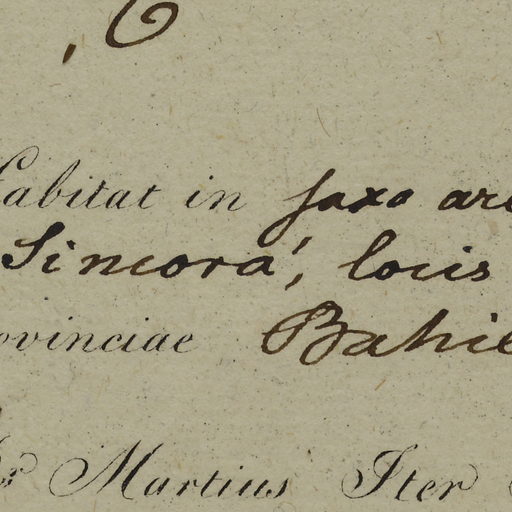 Habitat in saxo are
Sincorá, locis
ovinciae Bahie
Martius Iter